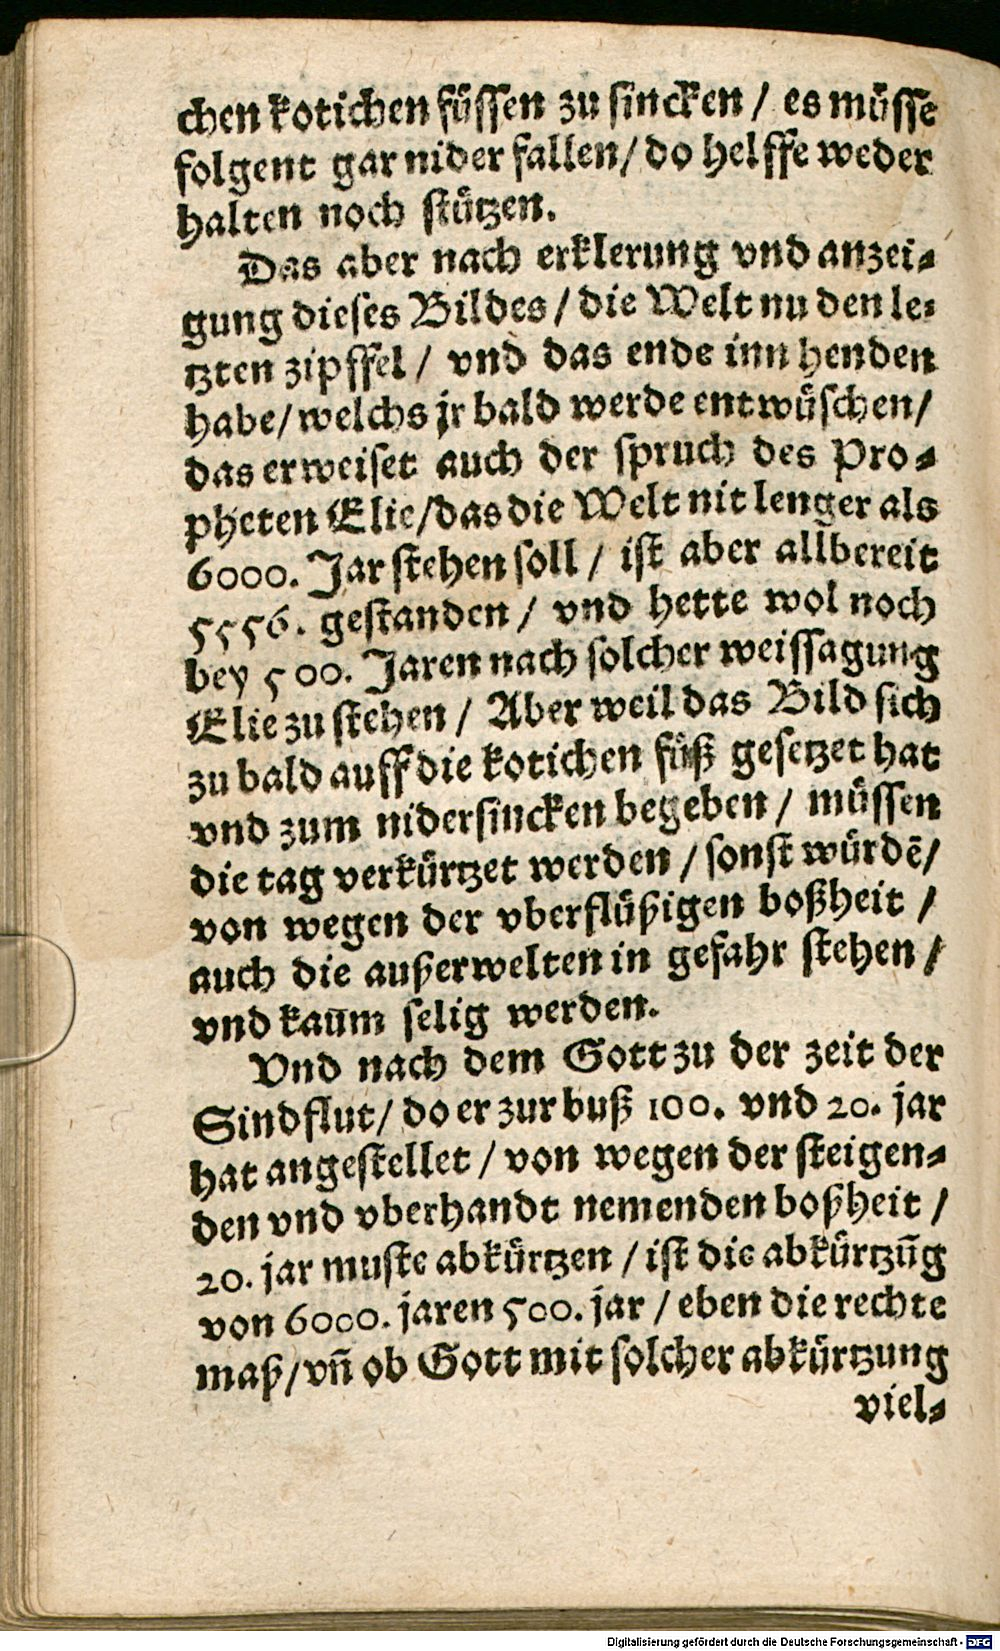 chen kotichen füssen zu sincken / es müsse
folgent gar nider fallen / do helffe weder
halten noch stützen.
Das aber nach erklerung vnd anzei⸗
gung dieses Bildes / die Welt nu den le⸗
tzten zipffel / vnd das ende inn henden
habe / welchs jr bald werde entwüschen /
das erweiset auch der spruch des Pro⸗
pheten Elie / das die Welt nit lenger als
6000. Jar stehen soll / ist aber allbereit
5556. gestanden / vnd hette wol noch
bey 500. Jaren nach solcher weissagung
Elie zu stehen / Aber weil das Bild sich
zu bald auff die kotichen füß gesetzet hat
vnd zum nidersincken begeben / müssen
die tag verkürtzet werden / sonst würdē /
von wegen der vberflüßigen boßheit /
auch die außerwelten in gefahr stehen /
vnd kaum selig werden.
Vnd nach dem Gott zu der zeit der
Sindflut / do er zur buß 100. vnd 20. jar
hat angestellet / von wegen der steigen⸗
den vnd vberhandt nemenden boßheit /
20. jar muste abkürtzen / ist die abkürtzūg
von 6000. jaren 500. jar / eben die rechte
maß / vñ ob Gott mit solcher abkürtzung
viel⸗
Digitalisierung gefördert durch die Deutsche Forschungsgemeinschaft - DFG